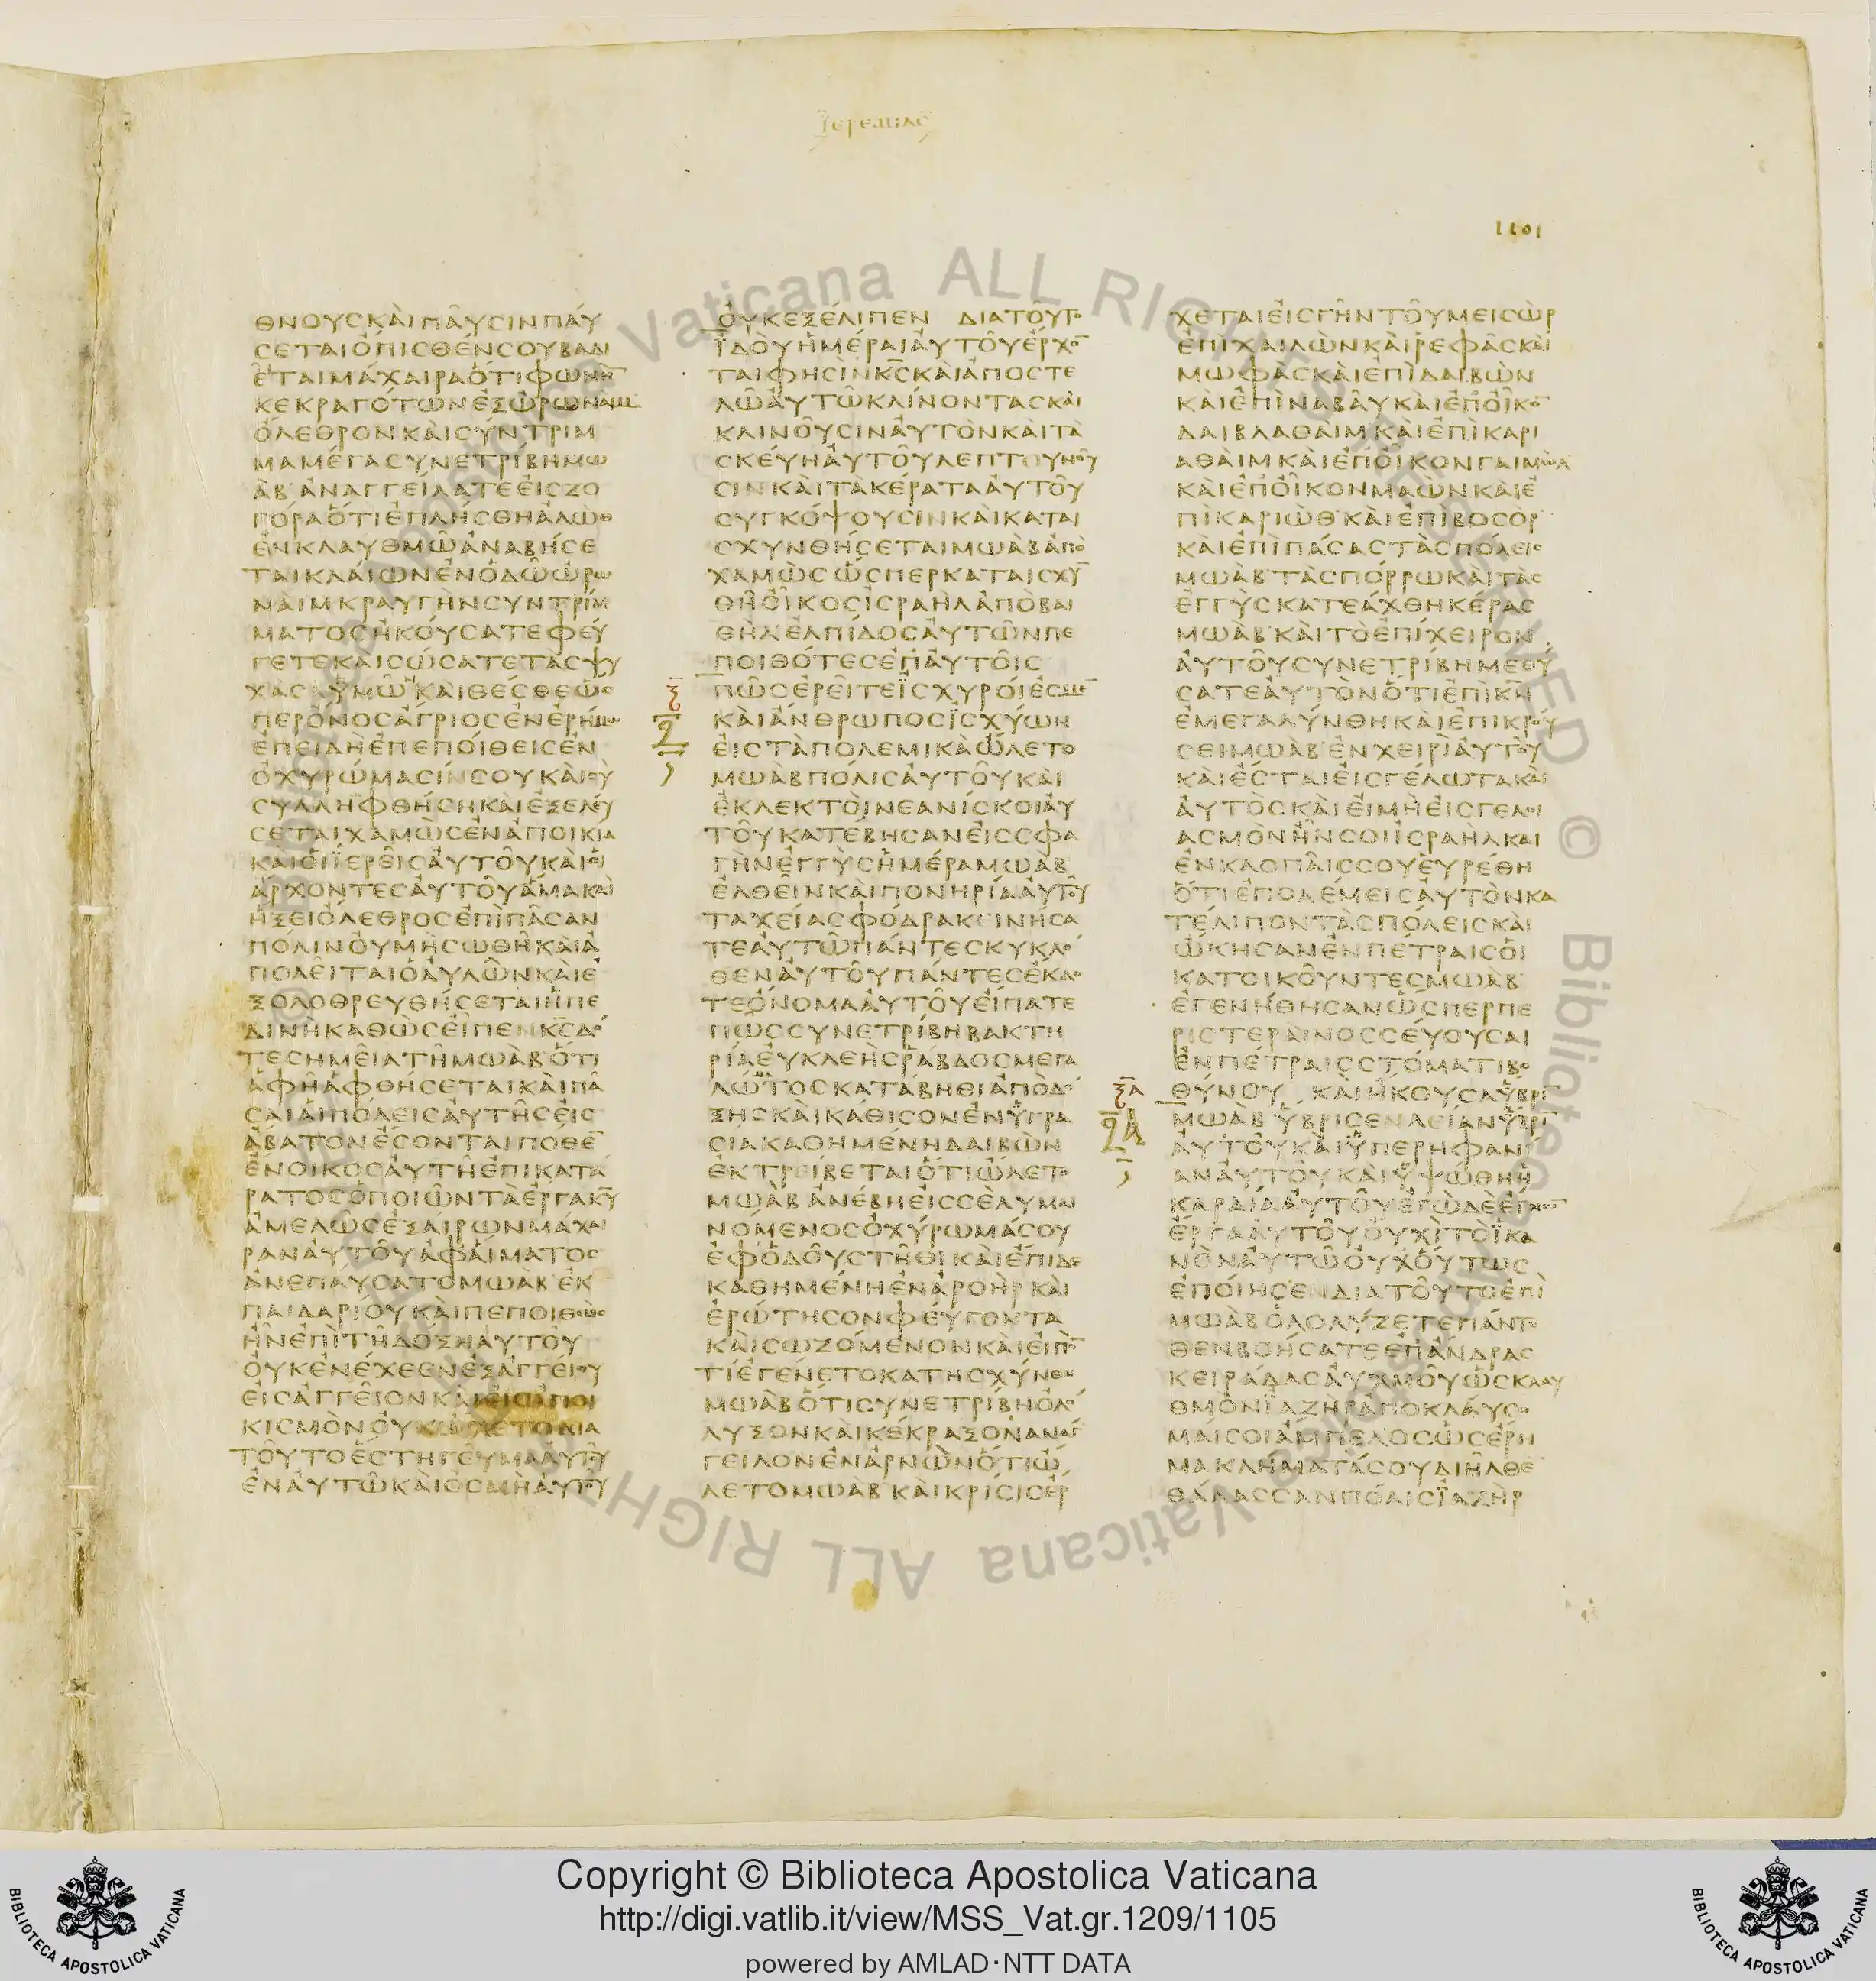 ϊερεμιασ
1101
ΘΝΟΥΣ ΚΑΙ ΠΑΥΣΙΝ ΠΑΥ
ΣΕΤΑΙ ΟΠΙΣΘΕΝ ΣΟΥ ΒΑΔΙ
ΕΤΑΙ ΜΑΧΑΙΡΑ ΟΤΙ ΦΩΝΗ
ΚΕΚΡΑΓΟΤΩΝ ΕΞ ΩΡΩΝΑΙΜ
ΟΛΕΘΡΟΝ ΚΑΙ ΣΥΝΤΡΙΜ
ΜΑ ΜΕΓΑ ΣΥΝΕΤΡΙΒΗ ΜΩ
ΑΒ ΑΝΑΓΓΕΙΛΑΤΕ ΕΙΣ ΖΟ
ΓΟΡΑ ΟΤΙ ΕΠΛΗΣΘΗ ΑΛΩΘ
ΕΝ ΚΛΑΥΘΜΩ ΑΝΑΒΗΣΕ
ΤΑΙ ΚΛΑΙΩΝ ΕΝ ΟΔΩ ΩΡΩ
ΝΑΙΜ ΚΡΑΥΓΗΝ ΣΥΝΤΡΙΜ
ΜΑΤΟΣ ΗΚΟΥΣΑΤΕ ΦΕΥ
ΓΕΤΕ ΚΑΙ ΣΩΣΑΤΕ ΤΑΣ ΨΥ
ΧΑΣ ΥΜΩΝ ΚΑΙ ΘΕΣΘΕ ΩΣ
ΠΕΡ ΟΝΟΣ ΑΓΡΙΟΣ ΕΝ ΕΡΗΜΩ
ΕΠΕΙΔΗ ΕΠΕΠΟΙΘΕΙΣ ΕΝ
ΟΧΥΡΩΜΑΣΙΝ ΣΟΥ ΚΑΙ ΣΥ
ΣΥΛΛΗΦΘΗΣΗ ΚΑΙ ΕΞΕΛΕΥ
ΣΕΤΑΙ ΧΑΜΩΣ ΕΝ ΑΠΟΙΚΙΑ
ΚΑΙ ΟΙ ΪΕΡΕΙΣ ΑΥΤΟΥ ΚΑΙ ΟΙ
ΑΡΧΟΝΤΕΣ ΑΥΤΟΥ ΑΜΑ ΚΑΙ
ΗΞΕΙ ΟΛΕΘΡΟΣ ΕΠΙ ΠΑΣΑΝ
ΠΟΛΙΝ ΟΥ ΜΗ ΣΩΘΗ ΚΑΙ Α
ΠΟΛΕΙΤΑΙ Ο ΑΥΛΩΝ ΚΑΙ Ε
ΞΟΛΟΘΡΕΥΘΗΣΕΤΑΙ Η ΠΕ
ΔΙΝΗ ΚΑΘΩΣ ΕΙΠΕΝ ΚΣ ΔΟ
ΤΕ ΣΗΜΕΙΑ ΤΗ ΜΩΑΒ ΟΤΙ
ΑΦΗ ΑΦΘΗΣΕΤΑΙ ΚΑΙ ΠΑ
ΣΑΙ ΑΙ ΠΟΛΕΙΣ ΑΥΤΗΣ ΕΙΣ
ΑΒΑΤΟΝ ΕΣΟΝΤΑΙ ΠΟΘΕ̅
ΕΝΟΙΚΟΣ ΑΥΤΗ ΕΠΙΚΑΤΑ
ΡΑΤΟΣ Ο ΠΟΙΩΝ ΤΑ ΕΡΓΑ ΚΥ
ΑΜΕΛΩΣ ΕΞΑΙΡΩΝ ΜΑΧΑΙ
ΡΑΝ ΑΥΤΟΥ ΑΦ ΑΙΜΑΤΟΣ
ΑΝΕΠΑΥΣΑΤΟ ΜΩΑΒ ΕΚ
ΠΑΙΔΑΡΙΟΥ ΚΑΙ ΠΕΠΟΙΘΩΣ
ΗΝ ΕΠΙ ΤΗ ΔΟΞΗ ΑΥΤΟΥ
ΟΥΚ ΕΝΕΧΕΕΝ ΕΞ ΑΓΓΕΙΟΥ
ΕΙΣ ΑΓΓΕΙΟΝ ΚΑΙ ΕΙΣ ΑΠΟΙ
ΚΙΣΜΟΝ ΟΥΚ ΩΧΕΤΟ ΔΙΑ
ΤΟΥΤΟ ΕΣΤΗ ΓΕΥΜΑ ΑΥΤΟΥ
ΕΝ ΑΥΤΩ ΚΑΙ ΟΣΜΗ ΑΥΤΟΥ
ΟΥΚ ΕΞΕΛΙΠΕΝ ΔΙΑ ΤΟΥΤΟ
ΪΔΟΥ ΗΜΕΡΑΙ ΑΥΤΟΥ ΕΡΧΟ̅
ΤΑΙ ΦΗΣΙΝ ΚΣ ΚΑΙ ΑΠΟΣΤΕ
ΛΩ ΑΥΤΩ ΚΛΙΝΟΝΤΑΣ ΚΑΙ
ΚΛΙΝΟΥΣΙΝ ΑΥΤΟΝ ΚΑΙ ΤΑ
ΣΚΕΥΗ ΑΥΤΟΥ ΛΕΠΤΟΥΝΟΥ
ΣΙΝ ΚΑΙ ΤΑ ΚΕΡΑΤΑ ΑΥΤΟΥ
ΣΥΓΚΟΨΟΥΣΙΝ ΚΑΙ ΚΑΤΑΙ
ΣΧΥΝΘΗΣΕΤΑΙ ΜΩΑΒ ΑΠΟ
ΧΑΜΩΣ ΩΣΠΕΡ ΚΑΤΑΙΣΧΥ̅
ΘΗ ΟΙΚΟΣ ΙΣΡΑΗΛ ΑΠΟ ΒΑΙ
ΘΗΛ ΕΛΠΙΔΟΣ ΑΥΤΩΝ ΠΕ
ΠΟΙΘΟΤΕΣ ΕΠ ΑΥΤΟΙΣ
ΠΩΣ ΕΡΕΙΤΕ ΪΣΧΥΡΟΙ ΕΣΜΕ̅
ΚΑΙ ΑΝΘΡΩΠΟΣ ΪΣΧΥΩΝ
ΕΙΣ ΤΑ ΠΟΛΕΜΙΚΑ ΩΛΕΤΟ
ΜΩΑΒ ΠΟΛΙΣ ΑΥΤΟΥ ΚΑΙ
ΕΚΛΕΚΤΟΙ ΝΕΑΝΙΣΚΟΙ ΑΥ
ΤΟΥ ΚΑΤΕΒΗΣΑΝ ΕΙΣ ΣΦΑ
ΓΗΝ ΕΓΓΥΣ ΗΜΕΡΑ ΜΩΑΒ
ΕΛΘΕΙΝ ΚΑΙ ΠΟΝΗΡΙΑ ΑΥΤΟΥ
ΤΑΧΕΙΑ ΣΦΟΔΡΑ ΚΕΙΝΗΣΑ
ΤΕ ΑΥΤΩ ΠΑΝΤΕΣ ΚΥΚΛΟ
ΘΕΝ ΑΥΤΟΥ ΠΑΝΤΕΣ ΕΚΔΟ
ΤΕ ΟΝΟΜΑ ΑΥΤΟΥ ΕΙΠΑΤΕ
ΠΩΣ ΣΥΝΕΤΡΙΒΗ ΒΑΚΤΗ
ΡΙΑ ΕΥΚΛΕΗΣ ΡΑΒΔΟΣ ΜΕΓΑ
ΛΩΜΑΤΟΣ ΚΑΤΑΒΗΘΙ ΑΠΟ ΔΟ
ΞΗΣ ΚΑΙ ΚΑΘΙΣΟΝ ΕΝ ΥΓΡΑ
ΣΙΑ ΚΑΘΗΜΕΝΗ ΔΑΙΒΩΝ
ΕΚΤΡΕΙΒΕΤΑΙ ΟΤΙ ΩΛΕΤΟ
ΜΩΑΒ ΑΝΕΒΗ ΕΙΣ ΣΕ ΛΥΜΑΙ
ΝΟΜΕΝΟΣ ΟΧΥΡΩΜΑ ΣΟΥ
ΕΦ ΟΔΟΥ ΣΤΗΘΙ ΚΑΙ ΕΠΙΔΕ
ΚΑΘΗΜΕΝΗ ΕΝ ΑΡΟΗΡ ΚΑΙ
ΕΡΩΤΗΣΟΝ ΦΕΥΓΟΝΤΑ
ΚΑΙ ΣΩΖΟΜΕΝΟΝ ΚΑΙ ΕΙΠΟ̅
ΤΙ ΕΓΕΝΕΤΟ ΚΑΤΗΣΧΥΝΘΗ
ΜΩΑΒ ΟΤΙ ΣΥΝΕΤΡΙΒΗ ΟΛΟ
ΛΥΞΟΝ ΚΑΙ ΚΕΚΡΑΞΟΝ ΑΝΑΓ
ΓΕΙΛΟΝ ΕΝ ΑΡΝΩΝ ΟΤΙ Ω
ΛΕΤΟ ΜΩΑΒ ΚΑΙ ΚΡΙΣΙΣ ΕΡ
ΧΕΤΑΙ ΕΙΣ ΓΗΝ ΤΟΥ ΜΕΙΣΩΡ
ΕΠΙ ΧΑΙΛΩΝ ΚΑΙ ΡΕΦΑΣ ΚΑΙ
ΜΩΦΑΣ ΚΑΙ ΕΠΙ ΔΑΙΒΩΝ
ΚΑΙ ΕΠΙ ΝΑΒΑΥ ΚΑΙ ΕΠ ΟΙΚΟ̅
ΔΑΙΒΛΑΘΑΙΜ ΚΑΙ ΕΠΙ ΚΑΡΙ
ΑΘΑΙΜ ΚΑΙ ΕΠ ΟΙΚΟΝ ΓΑΙΜΩΛ
ΚΑΙ ΕΠ ΟΙΚΟΝ ΜΑΩΝ ΚΑΙ Ε
ΠΙ ΚΑΡΙΩΘ ΚΑΙ ΕΠΙ ΒΟΣΟΡ
ΚΑΙ ΕΠΙ ΠΑΣΑΣ ΤΑΣ ΠΟΛΕΙΣ
ΜΩΑΒ ΤΑΣ ΠΟΡΡΩ ΚΑΙ ΤΑΣ
ΕΓΓΥΣ ΚΑΤΕΑΧΘΗ ΚΕΡΑΣ
ΜΩΑΒ ΚΑΙ ΤΟ ΕΠΙΧΕΙΡΟΝ
ΑΥΤΟΥ ΣΥΝΕΤΡΙΒΗ ΜΕΘΥ
ΣΑΤΕ ΑΥΤΟΝ ΟΤΙ ΕΠΙ ΚΝ
ΕΜΕΓΑΛΥΝΘΗ ΚΑΙ ΕΠΙΚΡΟΥ
ΣΕΙ ΜΩΑΒ ΕΝ ΧΕΙΡΙ ΑΥΤΟΥ
ΚΑΙ ΕΣΤΑΙ ΕΙΣ ΓΕΛΩΤΑ ΚΑΙ
ΑΥΤΟΣ ΚΑΙ ΕΙ ΜΗ ΕΙΣ ΓΕΛΟΙ
ΑΣΜΟΝ ΗΝ ΣΟΙ ΙΣΡΑΗΛ ΚΑΙ
ΕΝ ΚΛΟΠΑΙΣ ΣΟΥ ΕΥΡΕΘΗ
ΟΤΙ ΕΠΟΛΕΜΕΙΣ ΑΥΤΟΝ ΚΑ
ΤΕΛΙΠΟΝ ΤΑΣ ΠΟΛΕΙΣ ΚΑΙ
ΩΚΗΣΑΝ ΕΝ ΠΕΤΡΑΙΣ ΟΙ
ΚΑΤΟΙΚΟΥΝΤΕΣ ΜΩΑΒ
ΕΓΕΝΗΘΗΣΑΝ ΩΣΠΕΡ ΠΕ
ΡΙΣΤΕΡΑΙ ΝΟΣΣΕΥΟΥΣΑΙ
ΕΝ ΠΕΤΡΑΙΣ ΣΤΟΜΑΤΙ ΒΟ
ΘΥΝΟΥ ΚΑΙ ΗΚΟΥΣΑ ΥΒΡΙ̅
ΜΩΑΒ ΥΒΡΙΣΕΝ ΛΕΙΑΝ ΥΒΡΙ̅
ΑΥΤΟΥ ΚΑΙ ΥΠΕΡΗΦΑΝΙ
ΑΝ ΑΥΤΟΥ ΚΑΙ ΥΨΩΘΗ Η
ΚΑΡΔΙΑ ΑΥΤΟΥ ΕΓΩ ΔΕ ΕΓΝΩ̅
ΕΡΓΑ ΑΥΤΟΥ ΟΥΧΙ ΤΟ ΪΚΑ
ΝΟΝ ΑΥΤΩ ΟΥΧ ΟΥΤΩΣ
ΕΠΟΙΗΣΕΝ ΔΙΑ ΤΟΥΤΟ ΕΠΙ
ΜΩΑΒ ΟΛΟΛΥΖΕΤΕ ΠΑΝΤΟ
ΘΕΝ ΒΟΗΣΑΤΕ ΕΠ ΑΝΔΡΑΣ
ΚΕΙΡΑΔΑΣ ΑΥΧΜΟΥ ΩΣ ΚΛΑΥ
ΘΜΟΝ ΪΑΖΗΡ ΑΠΟΚΛΑΥΣΟ
ΜΑΙ ΣΟΙ ΑΜΠΕΛΟΣ ΩΣΕΡΗ
ΜΑ ΚΛΗΜΑΤΑ ΣΟΥ ΔΙΗΛΘΕ
ΘΑΛΑΣΣΑΝ ΠΟΛΙΣ ΪΑΖΗΡ
Copyright © Biblioteca Apostolica Vaticana
http://digi.vatlib.it/view/MSS_Vat.gr.1209/1105
powered by AMLAD·NTT DATA
BIBLIOTECA APOSTOLICA VATICANA
BIBLIOTECA APOSTOLICA VATICANA